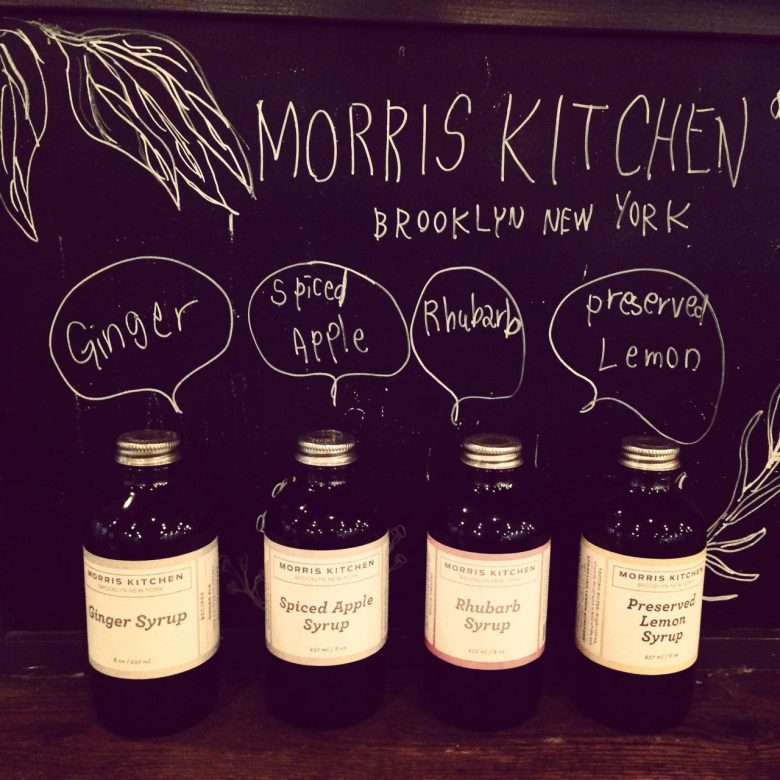 MORRIS KITCHEN
BROOKLYN NEW YORK
Ginger
Spiced
Apple
Rhubarb
preserved
Lemon
MORRIS KITCHEN
BROOKLYN NEW YORK
Ginger Syrup
8 oz / 237 ml
RECIPES
MORRIS KITCHEN
BROOKLYN NEW YORK
Spiced Apple
Syrup
237 ml / 8 oz
MORRIS KITCHEN
BROOKLYN NEW YORK
Rhubarb
Syrup
237 ml / 8 oz
MORRIS KITCHEN
BROOKLYN NEW YORK
Preserved
Lemon
Syrup
237 ml / 8 oz